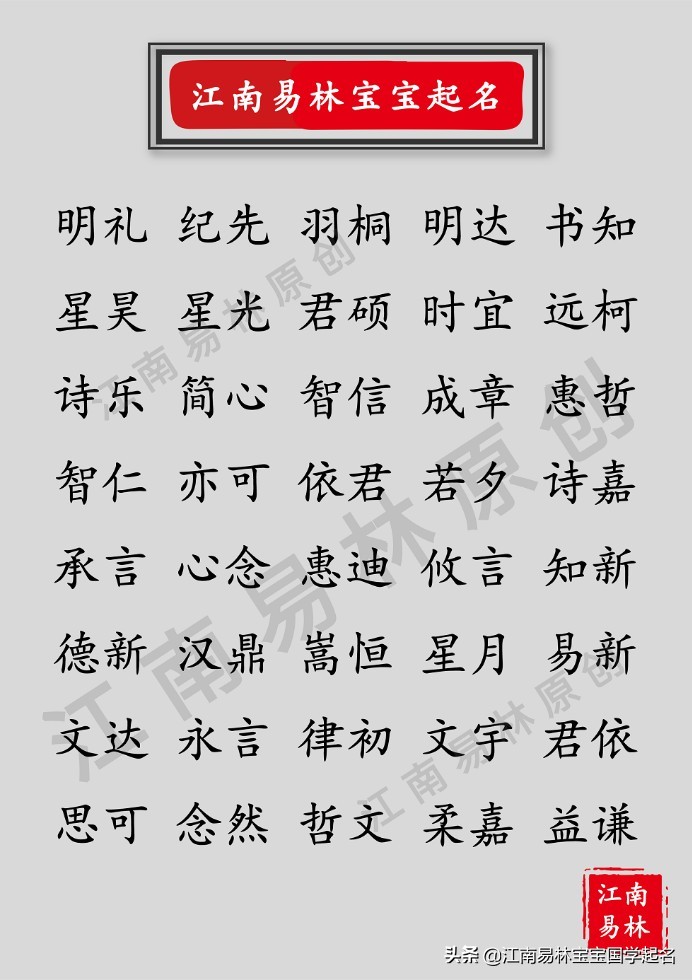 江南易林宝宝起名
明礼 纪先 羽桐 明达 书知
星昊 星光 君硕 时宜 远柯
诗乐 简心 智信 成章 惠哲
智仁 亦可 依君 若夕 诗嘉
承言 心念 惠迪 攸言 知新
德新 汉鼎 嵩恒 星月 易新
文达 永言 律初 文宇 君依
思可 念然 哲文 柔嘉 益谦
江南易林原创
江南易林原创
江南易林原创
江南
易林
头条 @江南易林宝宝国学起名